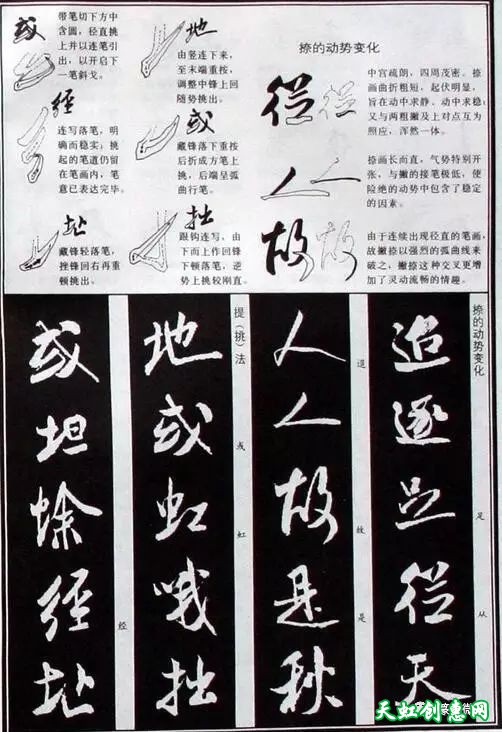 或
带笔切下方中
含圆，径直挑
上并以连笔引
出，以开启下
一笔斜戈。
经
连写落笔，明
确而稳实；挑
起的笔道仍留
在笔画内，笔
意已表达完毕。
址
藏锋轻落笔，
挫锋回右再重
顿挑出。
地
由竖连下来，
至末端重按，
调整中锋上回
随势挑出。
或
藏锋落下重按
后折成方笔上
挑，后端呈弧
曲行笔。
拙
跟钩连写，由
下而上作回锋
下顿落笔，逆
势上挑较刚直。
捺的动势变化
從
中宫疏朗，四周茂密。捺
画曲折粗短，起伏明显，
旨在动中求静。动中求稳；
又与两粗撇及上对点互为
照应，浑然一体。
人
捺画长而直，气势特别开
张，与撇的接笔极低，使
险绝的动势中包含了稳定
的因素。
故
由于连续出现径直的笔画，
故撇捺以强烈的弧曲线来
破之，撇捺这种交叉更增
加了灵动流畅的情趣。
捺的动势变化
追逐足從天
足 从
人人故是秋
道 故 是
提（挑）法
地或虹哦拙
或 虹
或坦蜍經址
经
天虹创意网